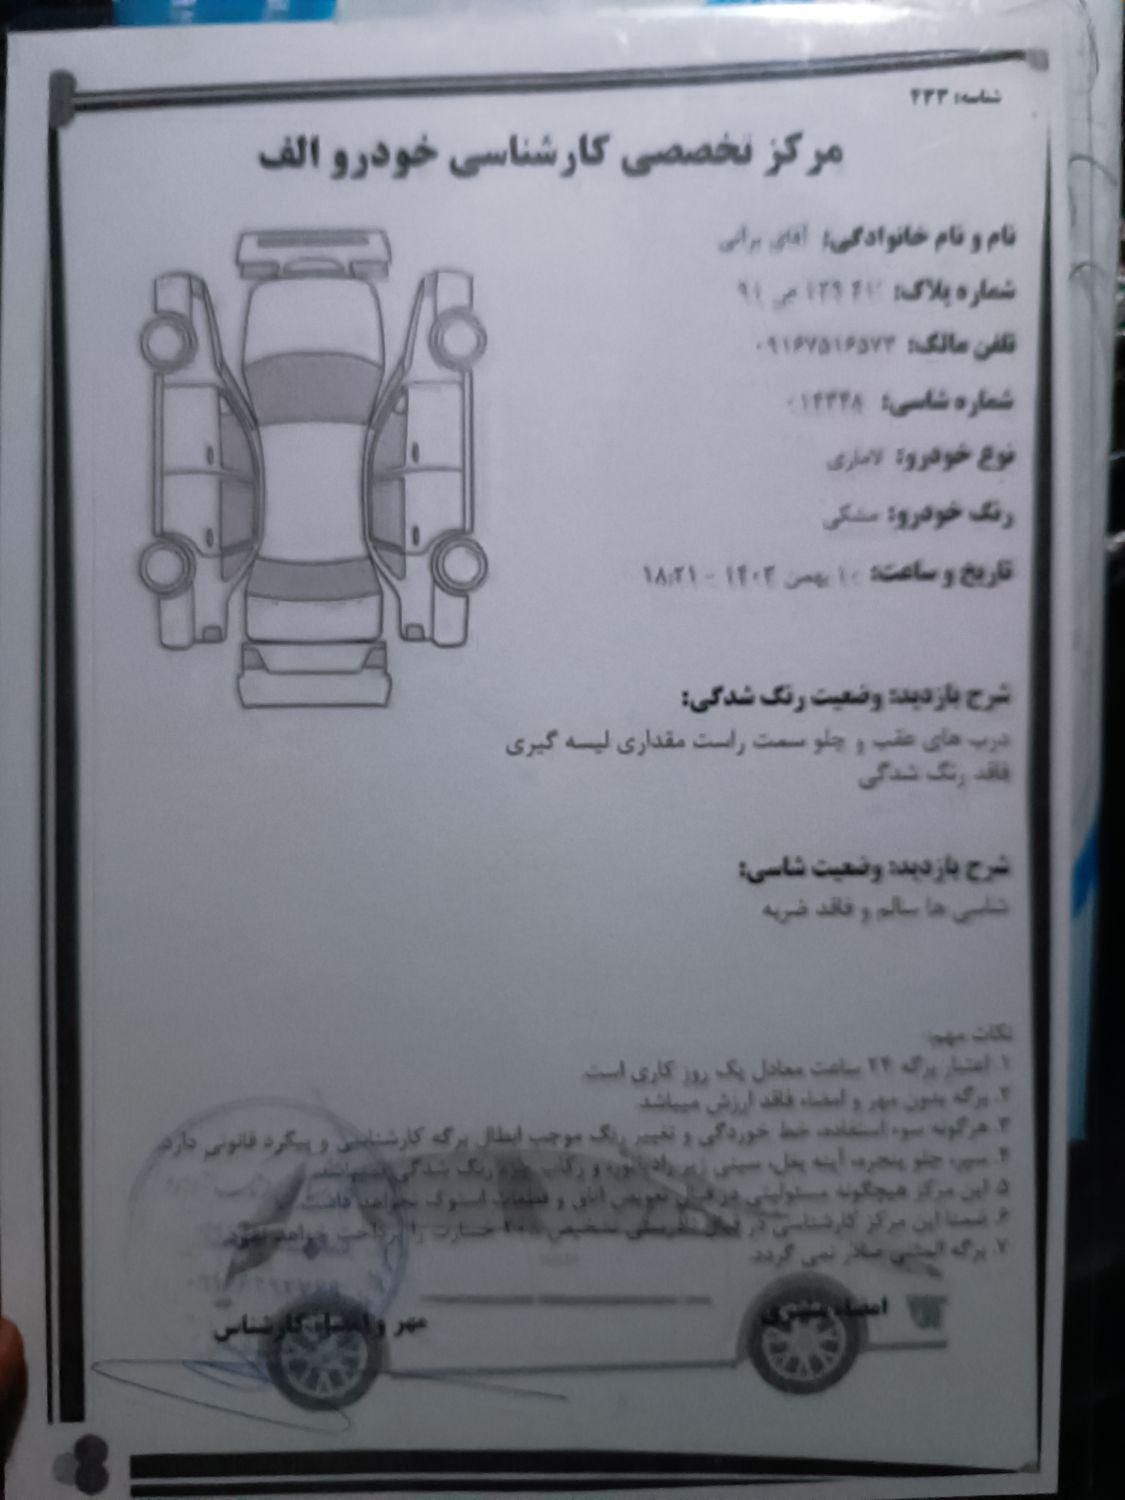 شناسه: ۴۳۳
مرکز تخصصی کارشناسی خودرو الف
نام و نام خانوادگی: آقای براتی
شماره پلاک: ۴۱ ۱۲۹ ص ۹۱
تلفن مالک: ۰۹۱۶۷۵۱۶۵۷۳
شماره شاسی: ۰۱۴۳۴۸
نوع خودرو: لاماری
رنگ خودرو: مشکی
تاریخ و ساعت: ۱۰ بهمن ۱۴۰۳ - ۱۸:۲۱
شرح بازدید: وضعیت رنگ شدگی:
درب های عقب و جلو سمت راست مقداری لیسه گیری
فاقد رنگ شدگی
شرح بازدید: وضعیت شاسی:
شاسی ها سالم و فاقد ضربه
نکات مهم:
۱. اعتبار برگه ۲۴ ساعت معادل یک روز کاری است.
۲. برگه بدون مهر و امضاء فاقد ارزش میباشد.
۳. هرگونه سوء استفاده، خط خوردگی و تغییر رنگ موجب ابطال برگه کارشناسی و پیگرد قانونی دارد.
۴. سپر، جلو پنجره، آینه بغل، سینی زیر رادیاتور و رکاب رنگ شدگی
۵. این مرکز هیچگونه مسئولیتی در قبال تعویض اتاق و قطعات استوک نخواهد داشت.
۶. ضمنا این مرکز کارشناسی در قبال تشخیص خسارت را پرداخت خواهد نمود.
۷. برگه المثنی صادر نمی گردد.
امضاء مشتری
مهر و امضاء کارشناس